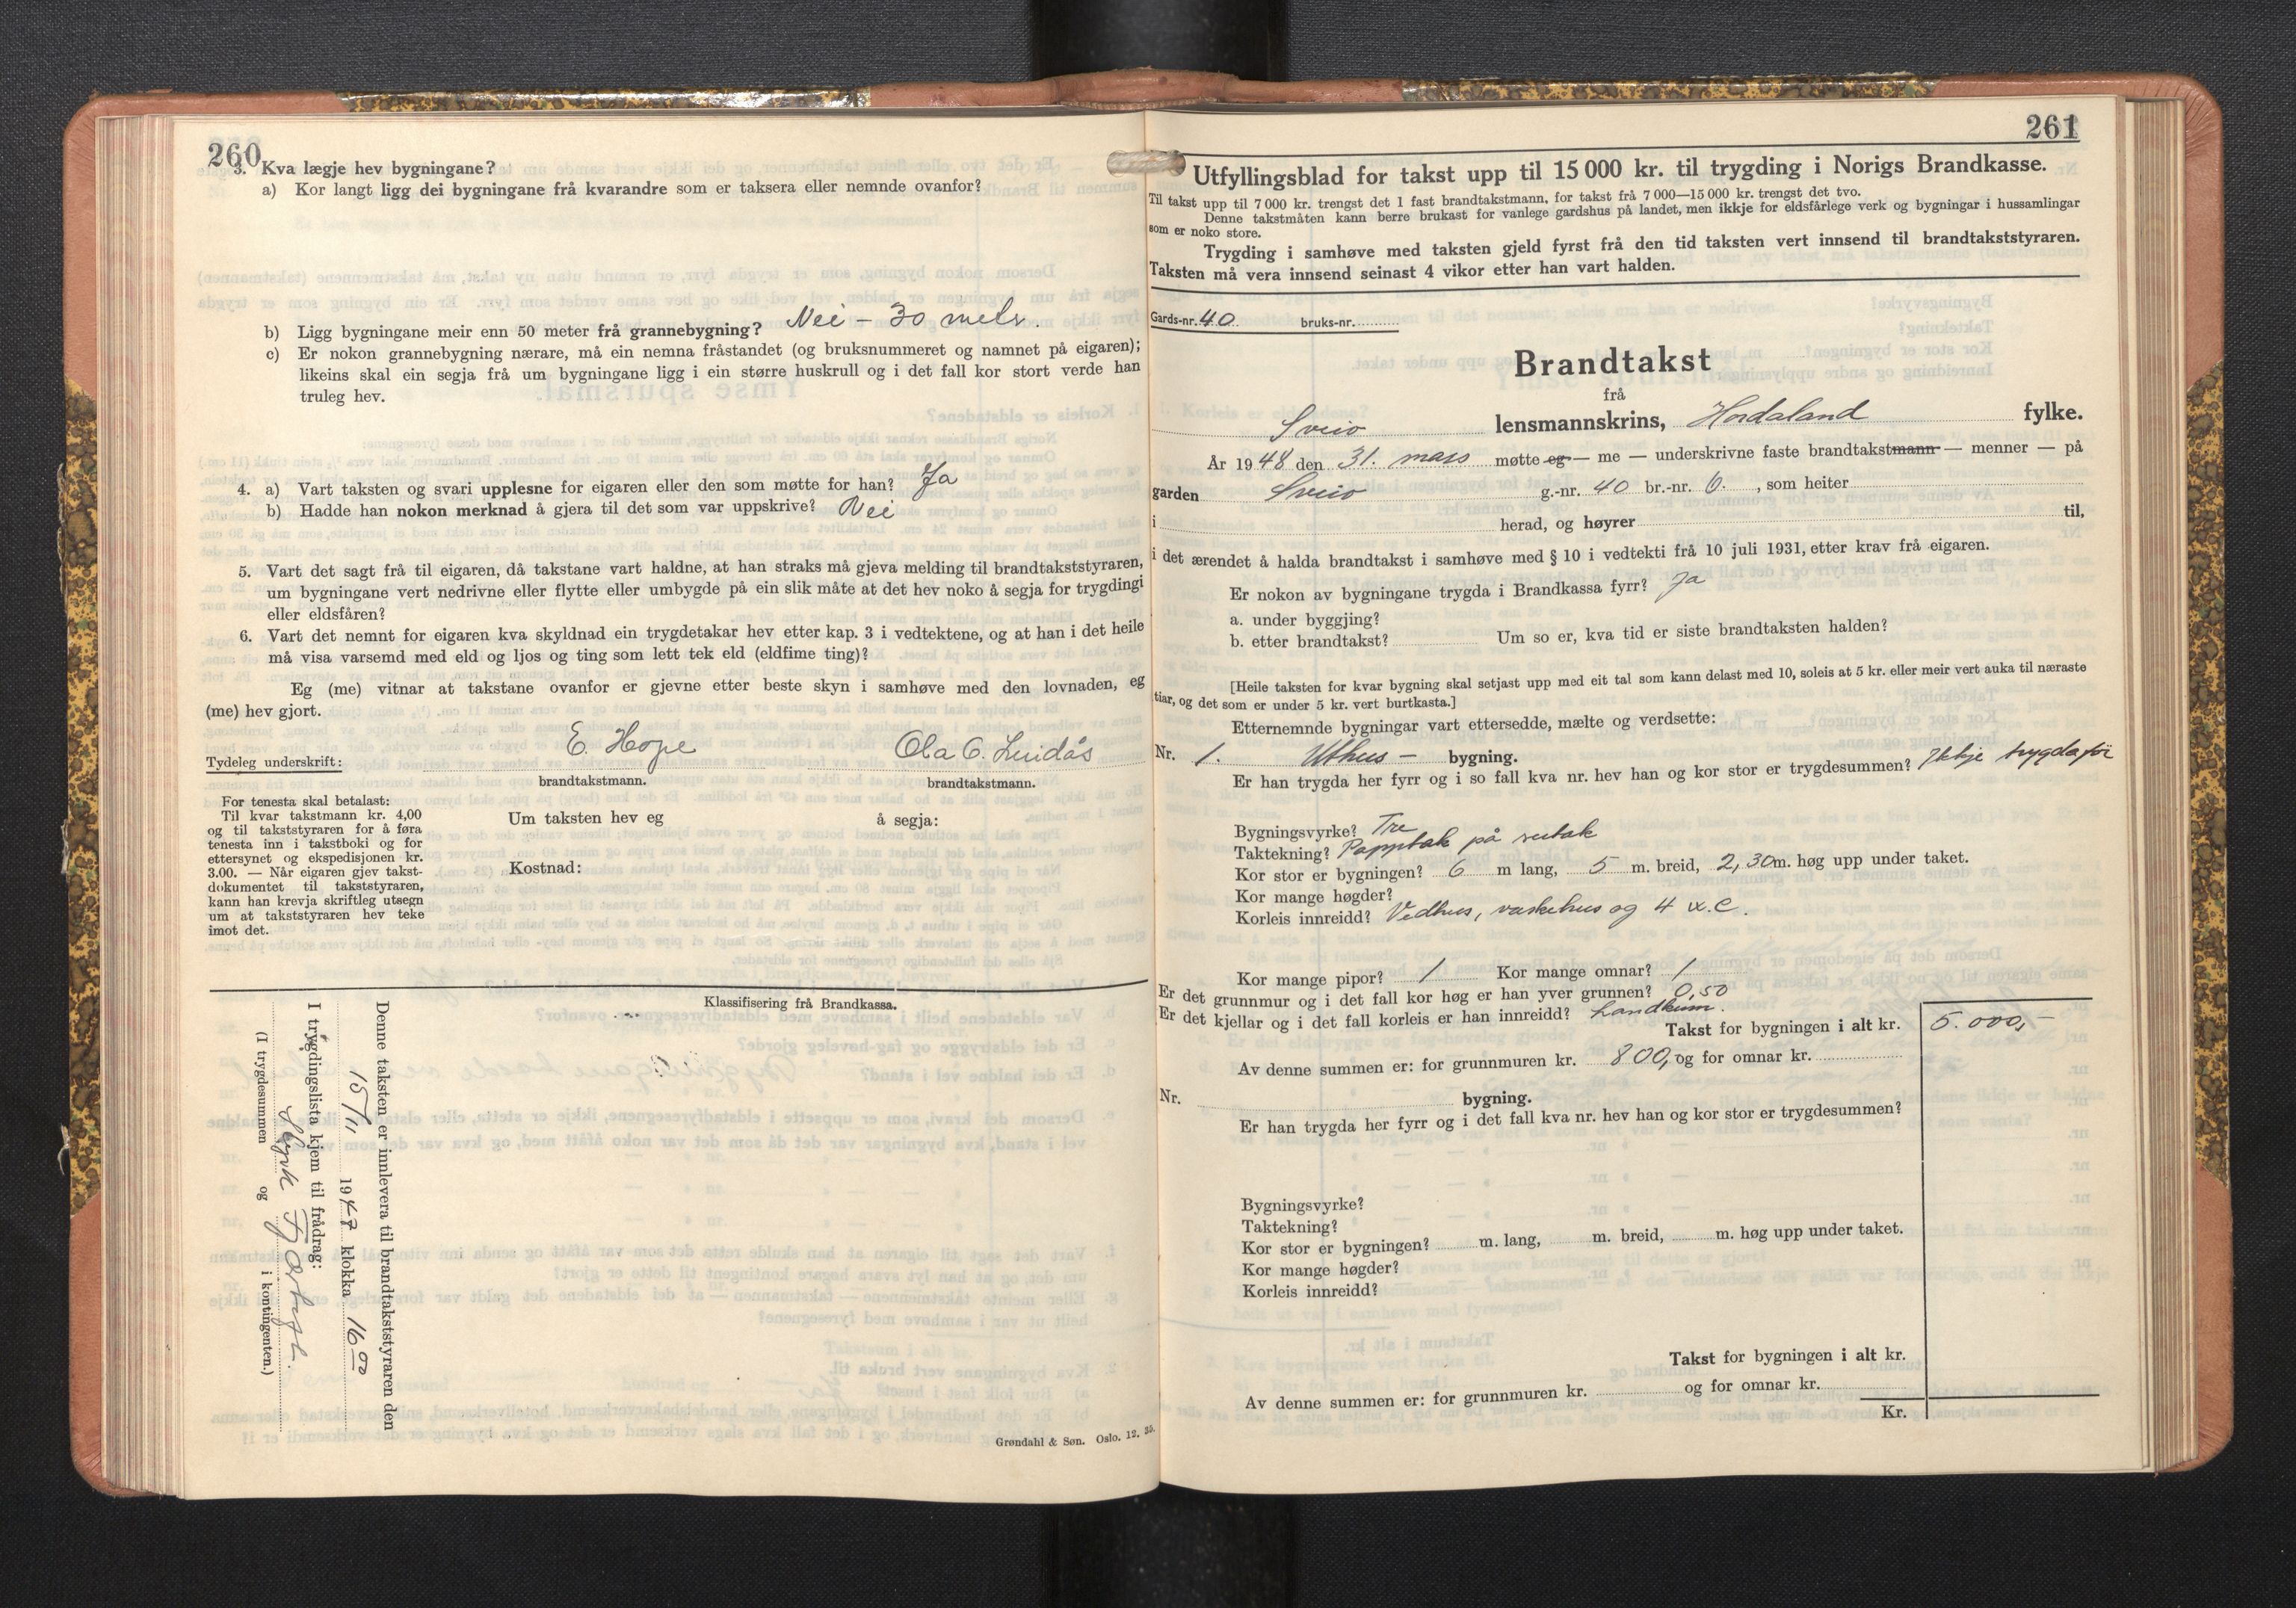 260
3. Kva lægje hev bygningane?
a) Kor langt ligg dei bygningane frå kvarandre som er taksera eller nemnde ovanfor?
b) Ligg bygningane meir enn 50 meter frå grannebygning? Nei – 30 meter.
c) Er nokon grannebygning nærare, må ein nemna fråstandet (og bruksnummeret og namnet på eigaren);
likeins skal ein segja frå um bygningane ligg i ein større huskrull og i det fall kor stort verde han
truleg hev.
4. a) Vart taksten og svari upplesne for eigaren eller den som møtte for han? Ja
b) Hadde han nokon merknad å gjera til det som var uppskrive? Nei
5. Vart det sagt frå til eigaren, då takstane vart haldne, at han straks må gjeva melding til brandtakststyraren,
um bygningane vert nedrivne eller flytte eller umbygde på ein slik måte at det hev noko å segja for trygdingi
eller eldsfåren?
6. Vart det nemnt for eigaren kva skyldnad ein trygdetakar hev etter kap. 3 i vedtektene, og at han i det heile
må visa varsemd med eld og ljos og ting som lett tek eld (eldfime ting)?
Eg (me) vitnar at takstane ovanfor er gjevne etter beste skyn i samhøve med den lovnaden, eg
(me) hev gjort.
Tydeleg underskrift: E. Hope Ola O. Lindås
brandtakstmann. brandtakstmann.
For tenesta skal betalast:
Til kvar takstmann kr. 4,00
og til takststyraren for å føra
tenesta inn i takstboki og for
ettersynet og ekspedisjonen kr.
3.00. — Når eigaren gjev takst-
dokumentet til takststyraren,
kann han krevja skriftleg utsegn
um at takststyraren hev teke
imot det.
Um taksten hev eg å segja:
Kostnad:
Klassifisering frå Brandkassa.
Denne taksten er innlevera til brandtakststyraren den
15/11 1948 klokka 16 00
I trygdingslista kjem til frådrag:
(I trygdesummen og i kontingenten.)
Grøndahl & Søn. Oslo. 12. 35.
261
Utfyllingsblad for takst upp til 15 000 kr. til trygding i Norigs Brandkasse.
Til takst upp til 7 000 kr. trengst det 1 fast brandtakstmann, for takst frå 7 000—15 000 kr. trengst det tvo.
Denne takstmåten kann berre brukast for vanlege gardshus på landet, men ikkje for eldsfårlege verk og bygningar i hussamlingar
som er noko store.
Trygding i samhøve med taksten gjeld fyrst frå den tid taksten vert innsend til brandtakststyraren.
Taksten må vera innsend seinast 4 vikor etter han vart halden.
Gards-nr. 40 bruks-nr.
Brandtakst
frå
Sveio lensmannskrins, Hordaland fylke.
År 1948 den 31. mars møtte eg — me — underskrivne faste brandtakstmann — menner — på
garden Sveio g.-nr. 40 br.-nr. 6. , som heiter
i herad, og høyrer til,
i det ærendet å halda brandtakst i samhøve med § 10 i vedtekti frå 10 juli 1931, etter krav frå eigaren.
Er nokon av bygningane trygda i Brandkassa fyrr? Ja
a. under byggjing?
b. etter brandtakst? Um so er, kva tid er siste brandtaksten halden?
[Heile taksten for kvar bygning skal setjast upp med eit tal som kann delast med 10, soleis at 5 kr. eller meir vert auka til næraste
tiar, og det som er under 5 kr. vert burtkasta.]
Etternemnde bygningar vart ettersedde, mælte og verdsette:
Nr. 1. Uthus – bygning.
Er han trygda her fyrr og i so fall kva nr. hev han og kor stor er trygdesummen? Ikkje trygda før
Bygningsvyrke? Tre
Taktekning? Papptak på sutak
Kor stor er bygningen? 6 m lang, 5 m. breid, 2,30 m. høg upp under taket.
Kor mange høgder?
Korleis innreidd? Vedhus, vaskehus og 4 w.c.
Kor mange pipor? 1 Kor mange omnar? 1
Er det grunnmur og i det fall kor høg er han yver grunnen? 0,50
Er det kjellar og i det fall korleis er han innreidd? Landkum.
Takst for bygningen i alt kr. 5.000,–
Av denne summen er: for grunnmuren kr. 800,- og for omnar kr.
Nr. bygning.
Er han trygda her fyrr og i det fall kva nr. hev han og kor stor er trygdesummen?
Bygningsvyrke?
Taktekning?
Kor stor er bygningen? m. lang, m. breid, m. høg upp under taket.
Kor mange høgder?
Korleis innreidd?
Takst for bygningen i alt kr.
Av denne summen er: for grunnmuren kr. og for omnar kr.
Kr.